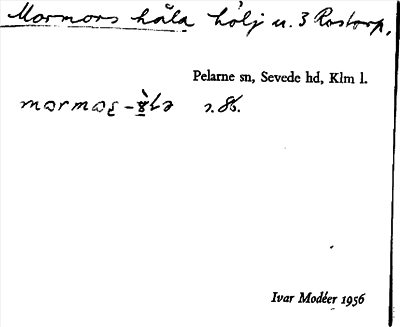 Mormors håla hölj u. 3 Rostorp,
Pelarne sn, Sevede hd, Klm l.
s. 86.
Ivar Modéer 1956